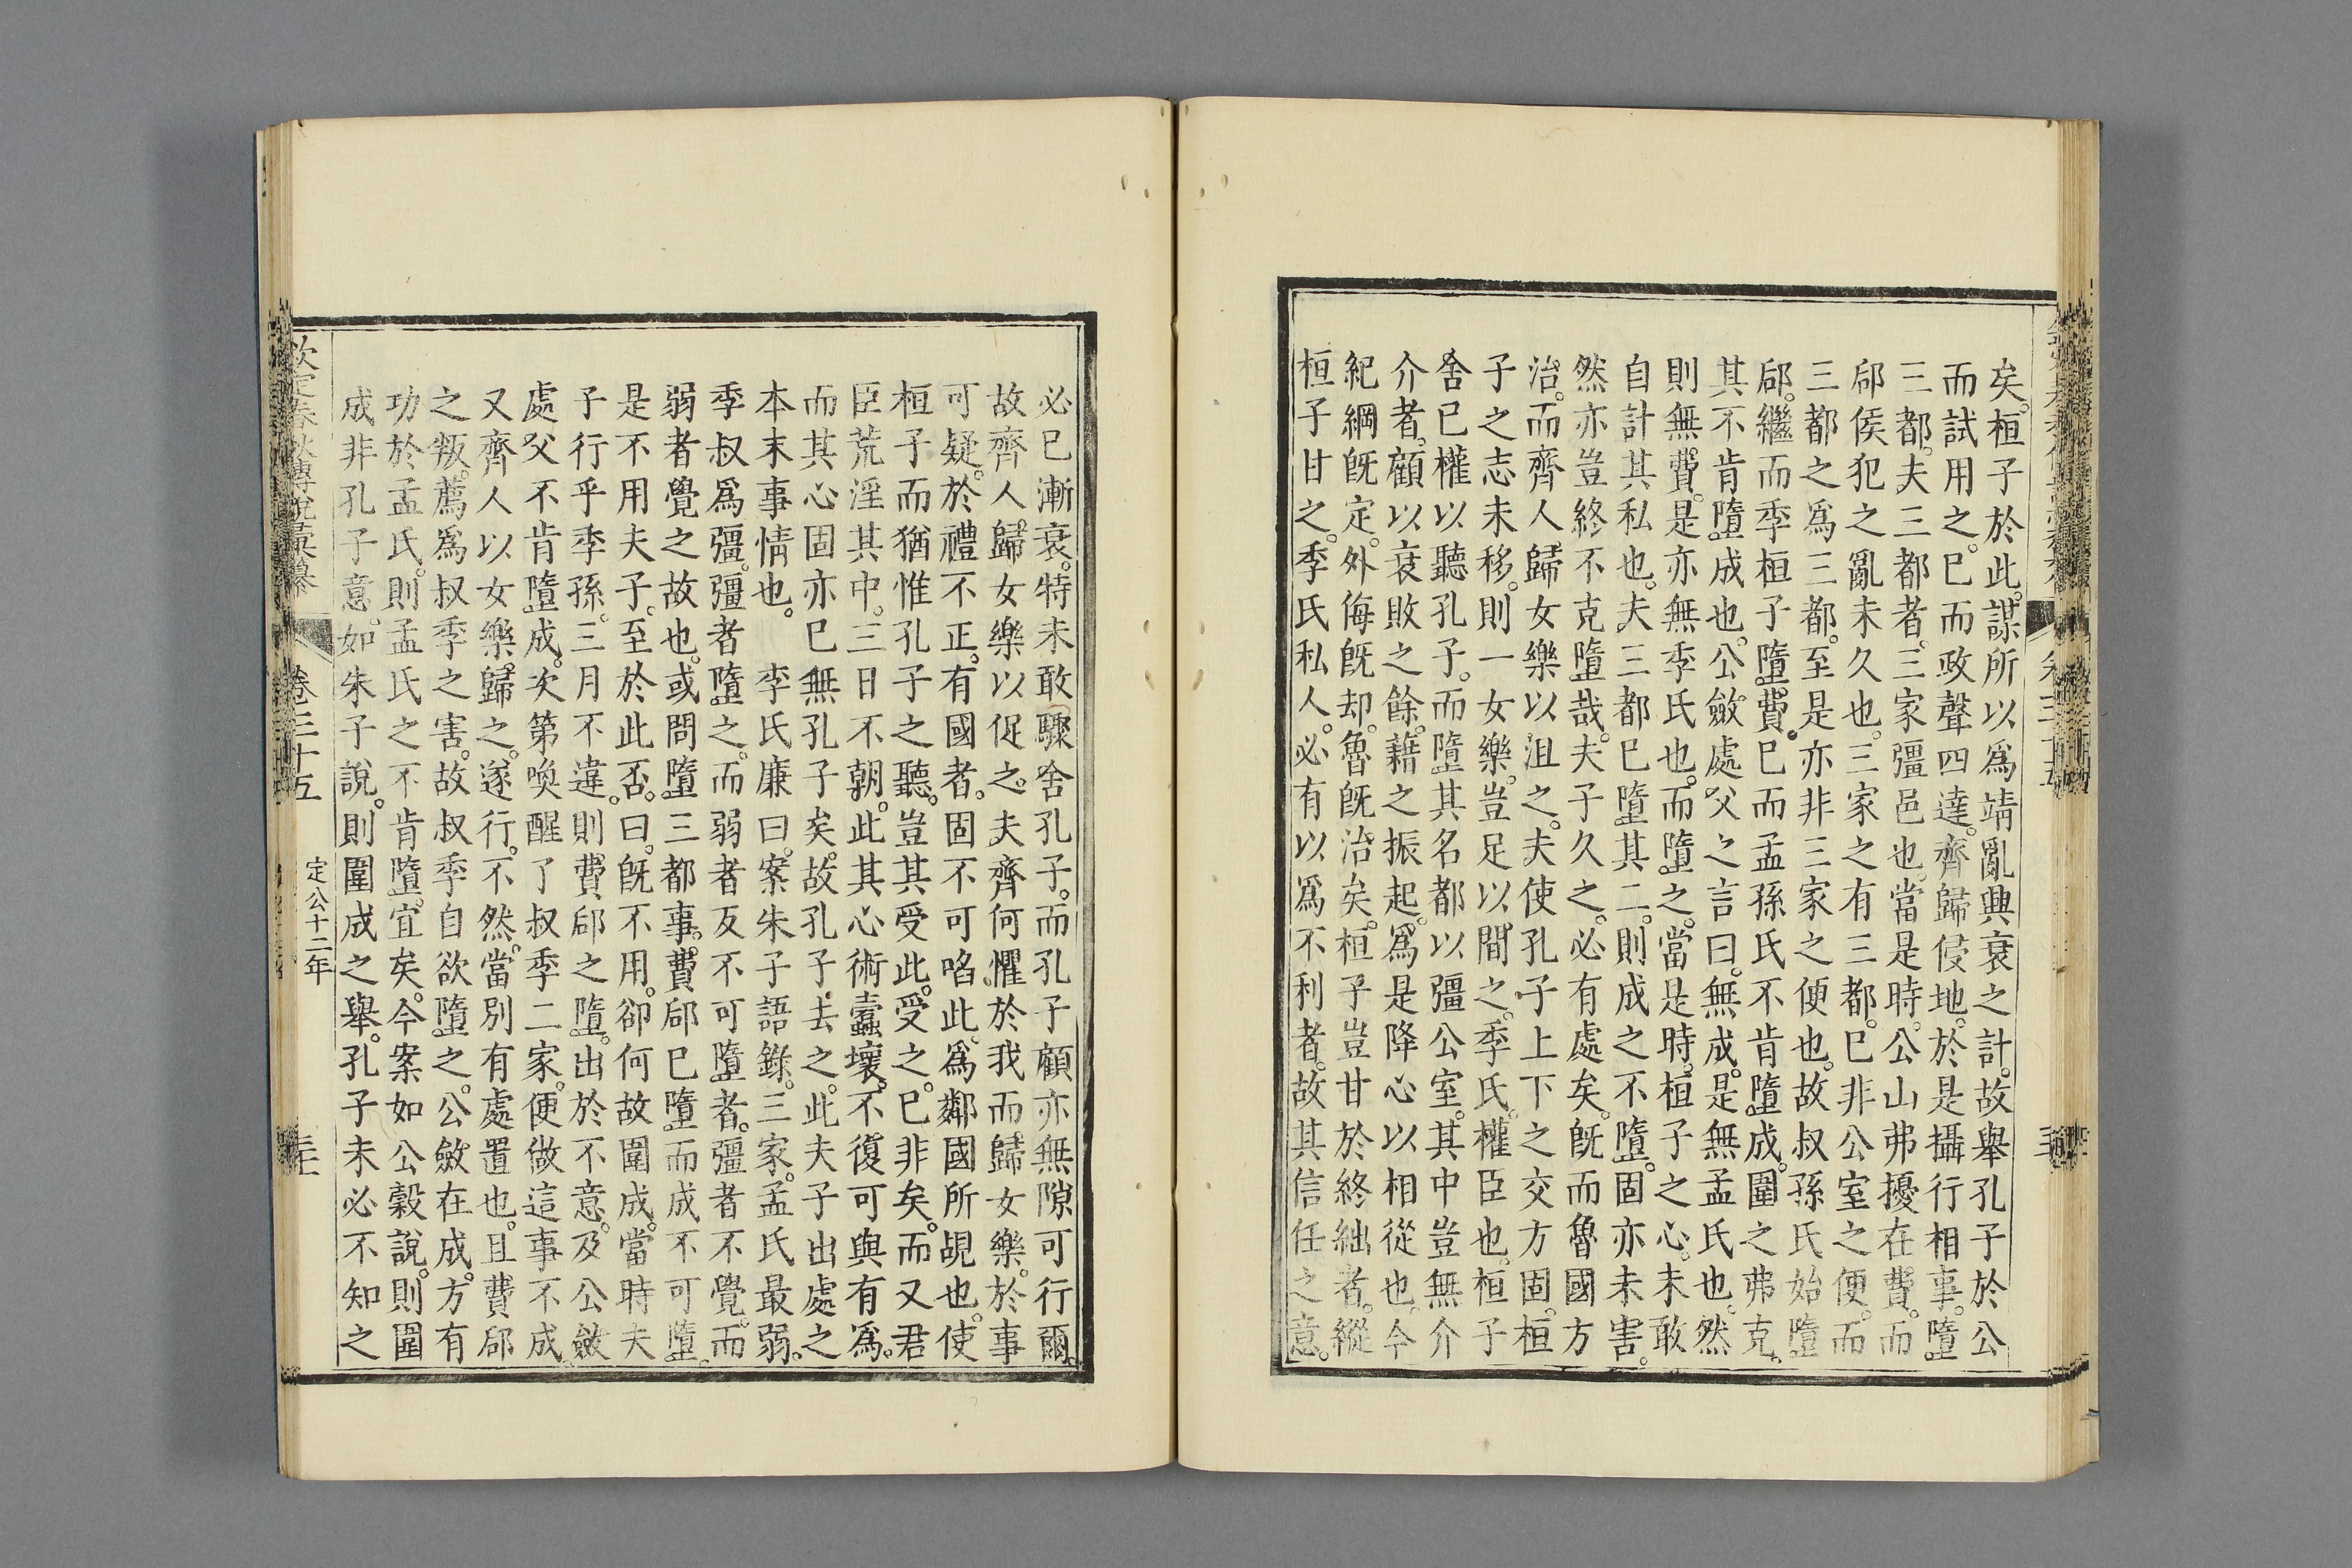 矣。桓子於此。謀所以爲靖亂興衰之計。故舉孔子於公
而試用之。已而政聲四達。齊歸侵地。於是攝行相事。墮
三都。夫三都者。三家彊邑也。當是時。公山弗擾在費。而
郈侯犯之亂未久也。三家之有三都。已非公室之便。而
三都之爲三都。至是亦非三家之便也。故叔孫氏始墮
郈。繼而季桓子墮費。已而孟孫氏不肯墮成。圍之弗克。
其不肯墮成也。公斂處父之言曰。無成。是無孟氏也。然
則無費。是亦無季氏也。而墮之。當是時。桓子之心。未敢
自計其私也。夫三都已墮其二。則成之不墮。固亦未害。
然亦豈終不克墮哉。夫子久之。必有處矣。旣而魯國方
治。而齊人歸女樂以沮之。夫使孔子上下之交方固。桓
子之志未移。則一女樂。豈足以間之。季氏。權臣也。桓子
舍已權以聽孔子。而墮其名都以彊公室。其中豈無介
介者。顧以衰敗之餘。藉之振起。爲是降心以相從也。今
紀綱旣定。外侮旣却。魯旣治矣。桓子豈甘於終絀者。縱
桓子甘之。季氏私人。必有以爲不利者。故其信任之意。
必已漸衰。特未敢驟舍孔子。而孔子顧亦無隙可行爾。
故齊人歸女樂以促之。夫齊何懼於我而歸女樂。於事
可疑。於禮不正。有國者。固不可啗此。爲鄰國所覘也。使
桓子而猶惟孔子之聽。豈其受此。受之。已非矣。而又君
臣荒淫其中。三日不朝。此其心術蠹壞。不復可與有爲。
而其心固亦已無孔子矣。故孔子去之。此夫子出處之
本末事情也。 李氏廉曰。案朱子語錄。三家。孟氏最弱。
季叔爲彊。彊者墮之。而弱者反不可墮者。彊者不覺。而
弱者覺之故也。或問墮三都事。費郈已墮而成不可墮。
是不用夫子。至於此否。曰。旣不用。卻何故圍成。當時夫
子行乎季孫。三月不違。則費郈之墮。出於不意。及公斂
處父不肯墮成。次第喚醒了叔季二家。便做這事不成。
又齊人以女樂歸之。遂行。不然。當別有處置也。且費郈
之叛。薦爲叔季之害。故叔季自欲墮之。公斂在成。方有
功於孟氏。則孟氏之不肯墮。宜矣。今案如公穀說。則圍
成非孔子意。如朱子說。則圍成之舉。孔子未必不知之
欽定春秋傳說彙纂 卷三十五 定公十二年